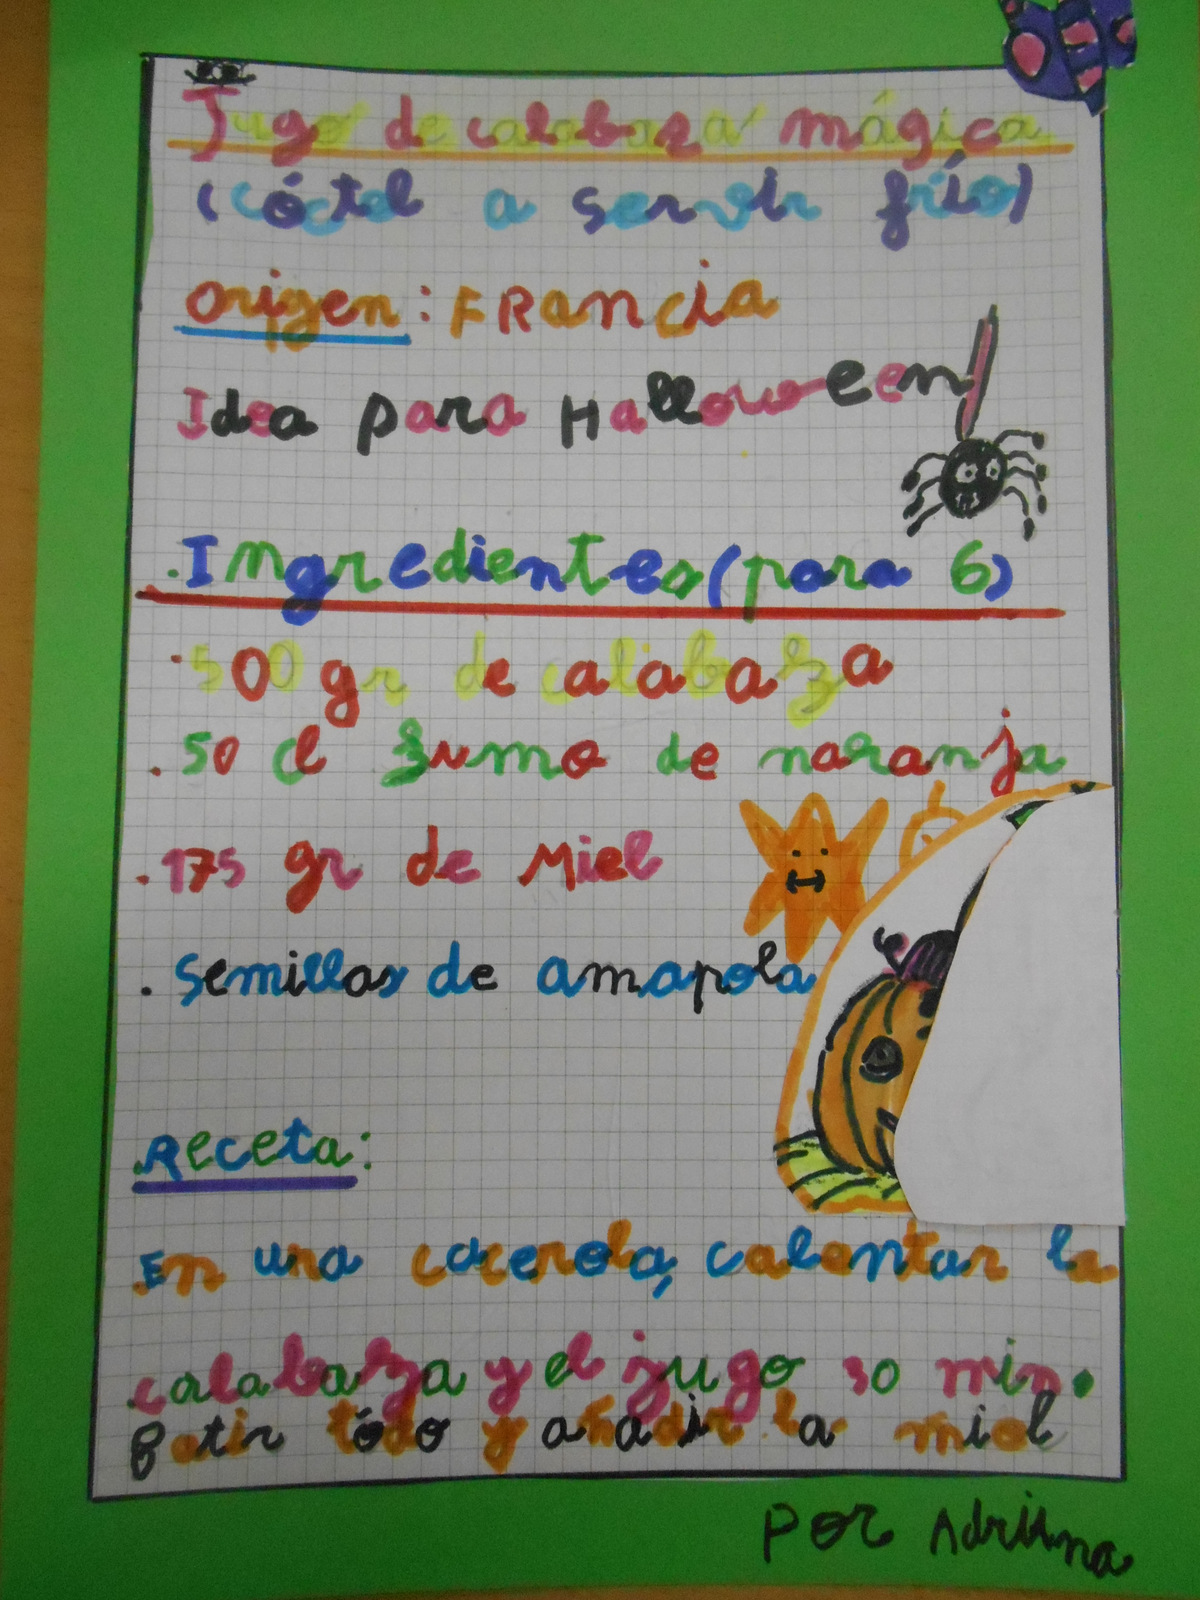 Jugo de calabaza mágica
(cóctel a servir frío)
Origen: FRancia
Idea para Halloween!
.Ingredientes (para 6)
.500 gr de calabaza
.50 cl zumo de naranja
.175 gr de Miel
.Semillas de amapola
.Receta:
En una cacerola, calentar la
calabaza y el jugo 30 min.
Batir tódo y añadir la miel
Por Adriana